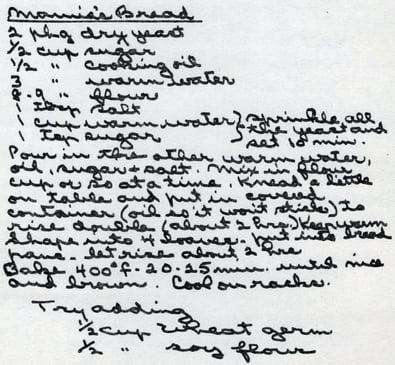 Monnie's Bread
2 pkg dry yeast
1/2 cup sugar
1/2 " cooking oil
3 " warm water
8-9 " flour
1 tbsp salt
1 cup warm water } sprinkle all
1 tsp sugar } the yeast and
set 10 min.
Pour in the other warm water,
oil, sugar + salt. Mix in flour
cup or so at a time. Knead a little
on table and put in covered
container (oil so it won't stick) to
rise double (about 2 hrs.) Keep warm
Shape into 4 loaves. Put into bread
pans - let rise about 2 hrs
Bake 400°F - 20-25 min. until nice
and brown. Cool on racks.
Try adding
1/2 cup wheat germ
1/2 " soy flour